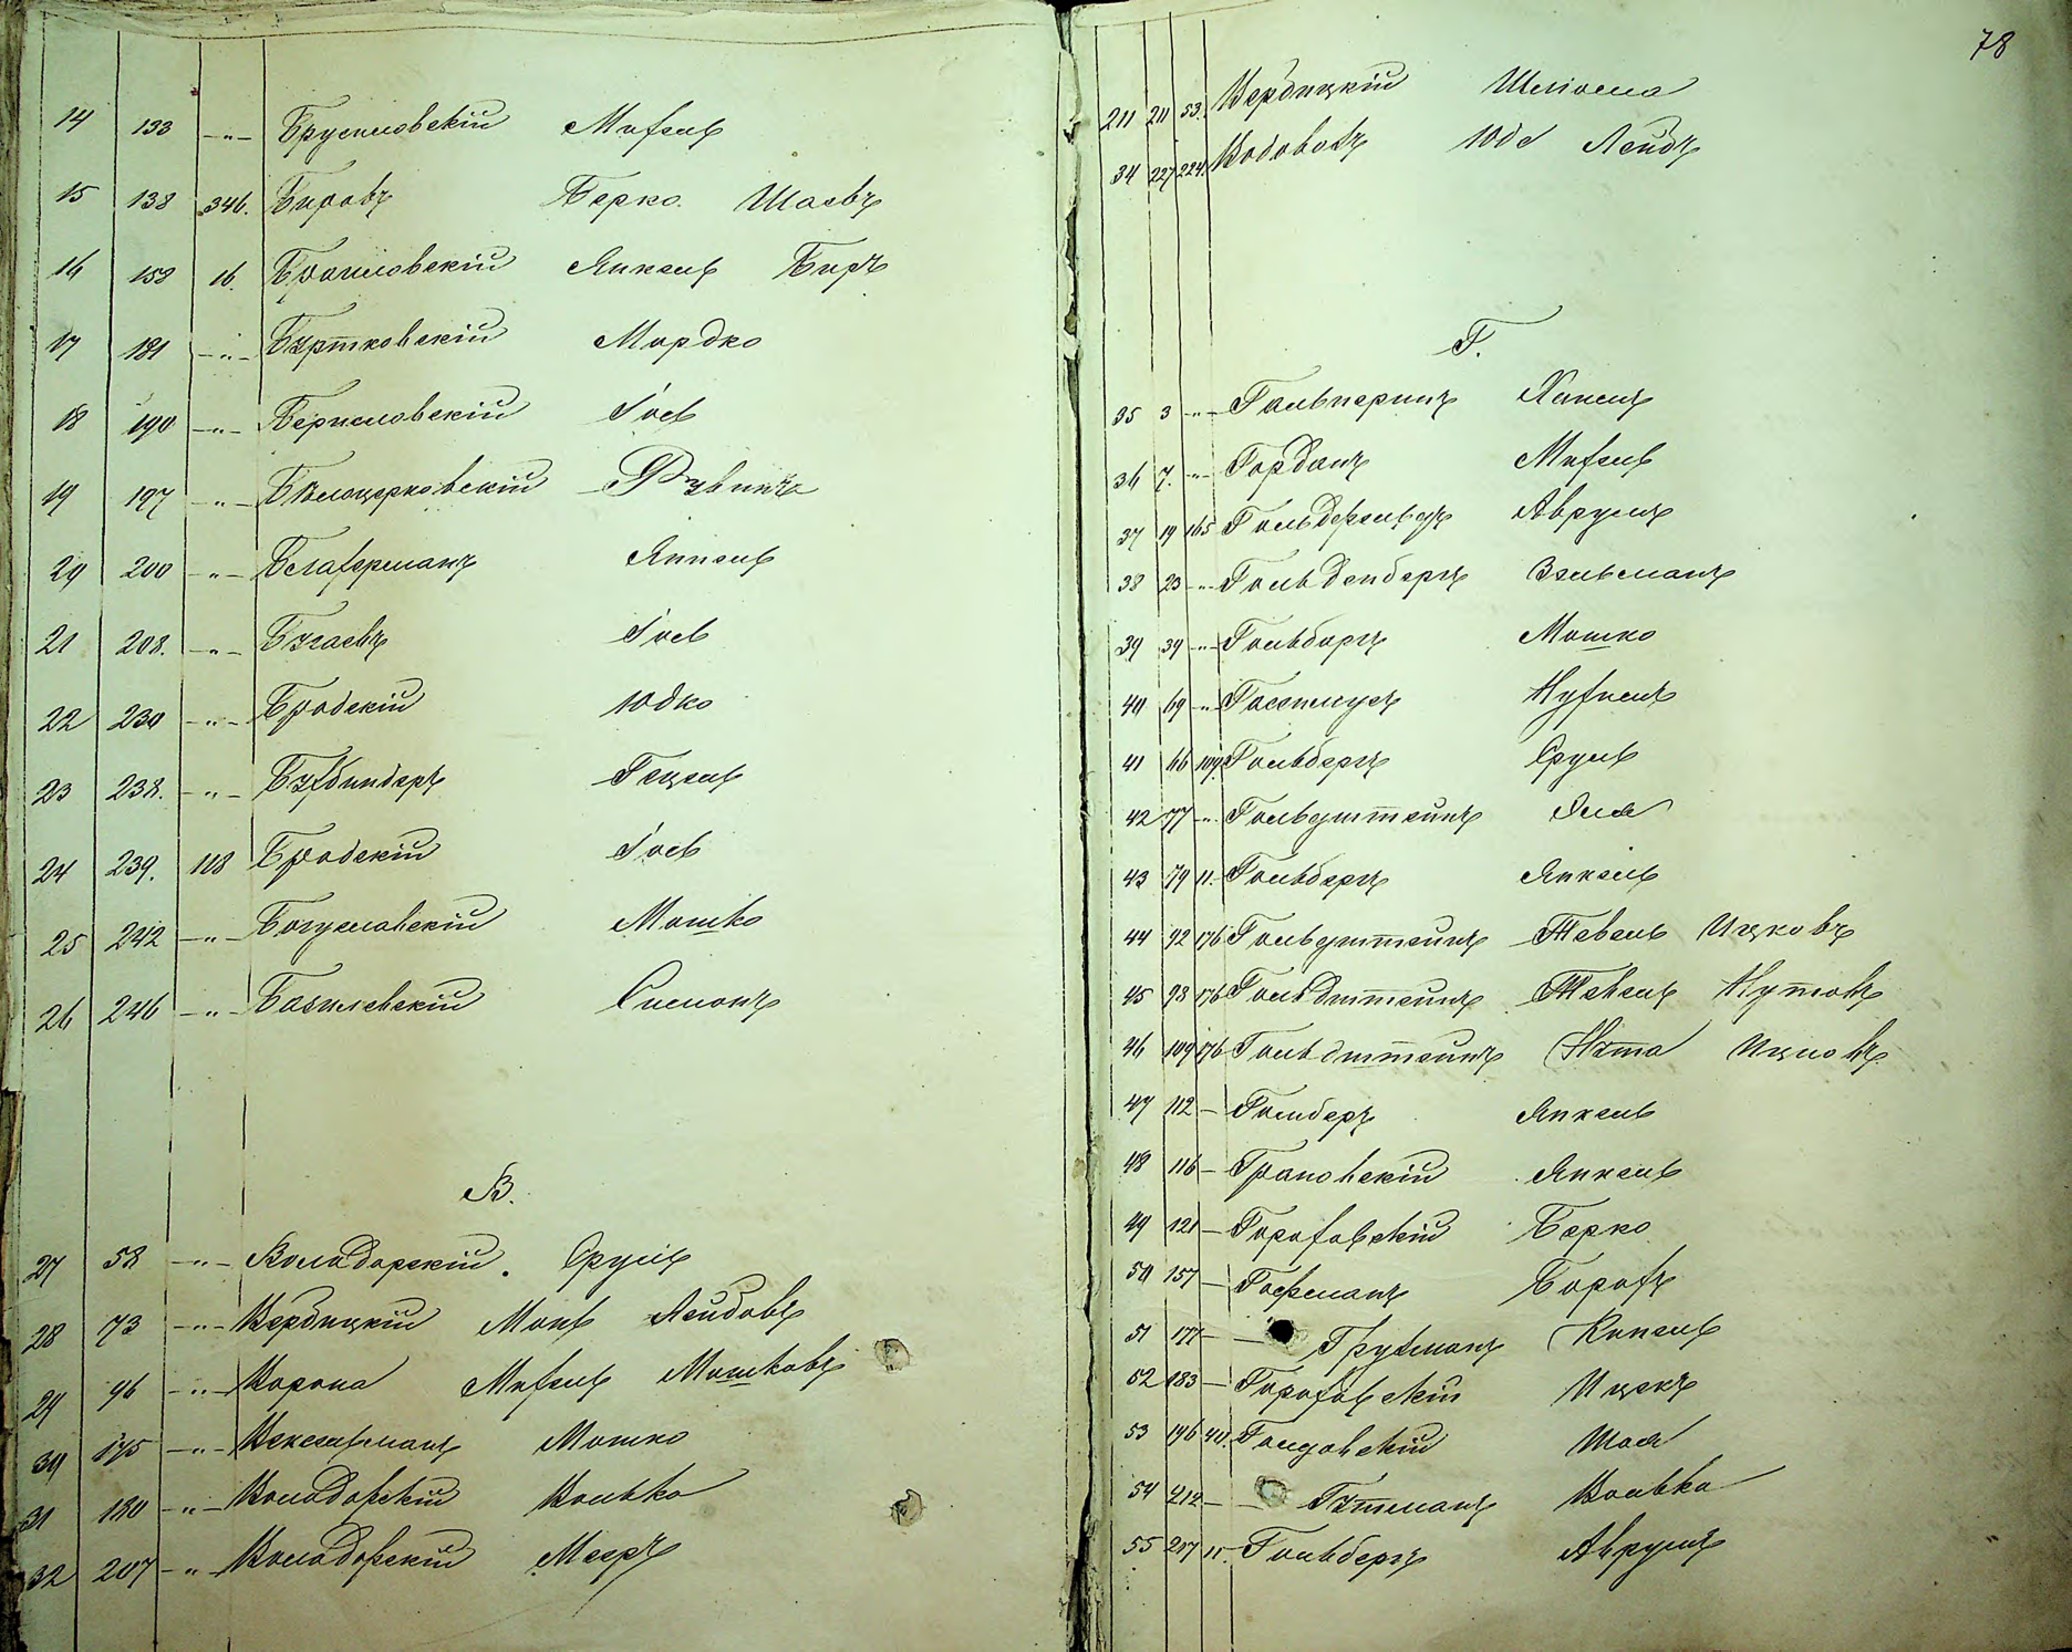 14 133 -"- Брусиловскій Михель
15 138 346. Бировъ Берко Шаевъ
16 158 16. Браиловскій Янкель Беръ
17 181 -"- Буртковскій Мордко
18 190 -"- Бериславскій Іось
19 197 -"- Бѣлоцерковскій Рувинъ
20 200 -"- Белахерманъ Янкель
21 208. -"- Бугаевъ Іось
22 230 -"- Бродскій Юдко
23 238. -"- Бухбиндеръ Гецель
24 239. 118 Бродскій Іось
25 242 -"- Богуславскій Мошко
26 246 -"- Басилевскій Симонъ
В.
27 58 -"- Володарскій Сруль
28 73 -"- Вербицкій Лейбовъ
29 96 -"- Ворона Михель Мошковъ
30 175 -"- Мошко
31 180 -"- Володарскій Волько
32 207 -"- Володарскій Мееръ
78
211 211 53. Вербицкій Шліома
34 227 224. Водовозъ Юда Лейбъ
Г.
35 3 -"- Гальперинъ
36 7. -"- Горданъ Михель
37 19 165 Аврумъ
38 23 -"- Гольденбергъ Зельманъ
39 39 -"- Гольдбергъ Мошко
40 69 -"- Нухимъ
41 66 109. Гольдбергъ Сруль
42 77 -"- Гольдштейнъ Эля
43 79 11. Гольдбергъ Янкель
44 92 176 Гольдштейнъ Тевель Ицковъ
45 98 176 Гольдштейнъ Тевель Нутовъ
46 109 176 Гольдштейнъ Нута Ицковъ
47 112 - Гомберъ Янкель
48 116 - Грановскій Янкель
49 121 - Гороховскій Берко
50 157 - Гофманъ Борохъ
51 177 - Грухманъ
52 183 - Гороховскій Ицекъ
53 196 40. Шая
54 212 - Гутманъ Волько
55 217 11. Гольдбергъ Аврумъ